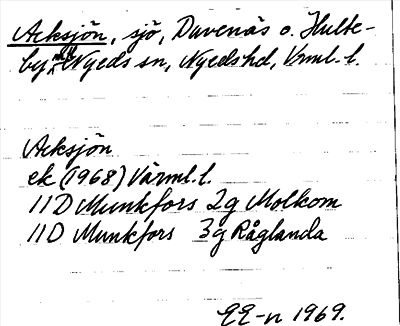 Acksjön, sjö, Davenäs o. Hulte-
by, Nyeds sn, Nyedshd, Vrml. l.
Acksjön
ek (1968) Värml. l.
11D Munkfors 2g Molkom
11D Munkfors 3g Råglanda
EE-n 1969.